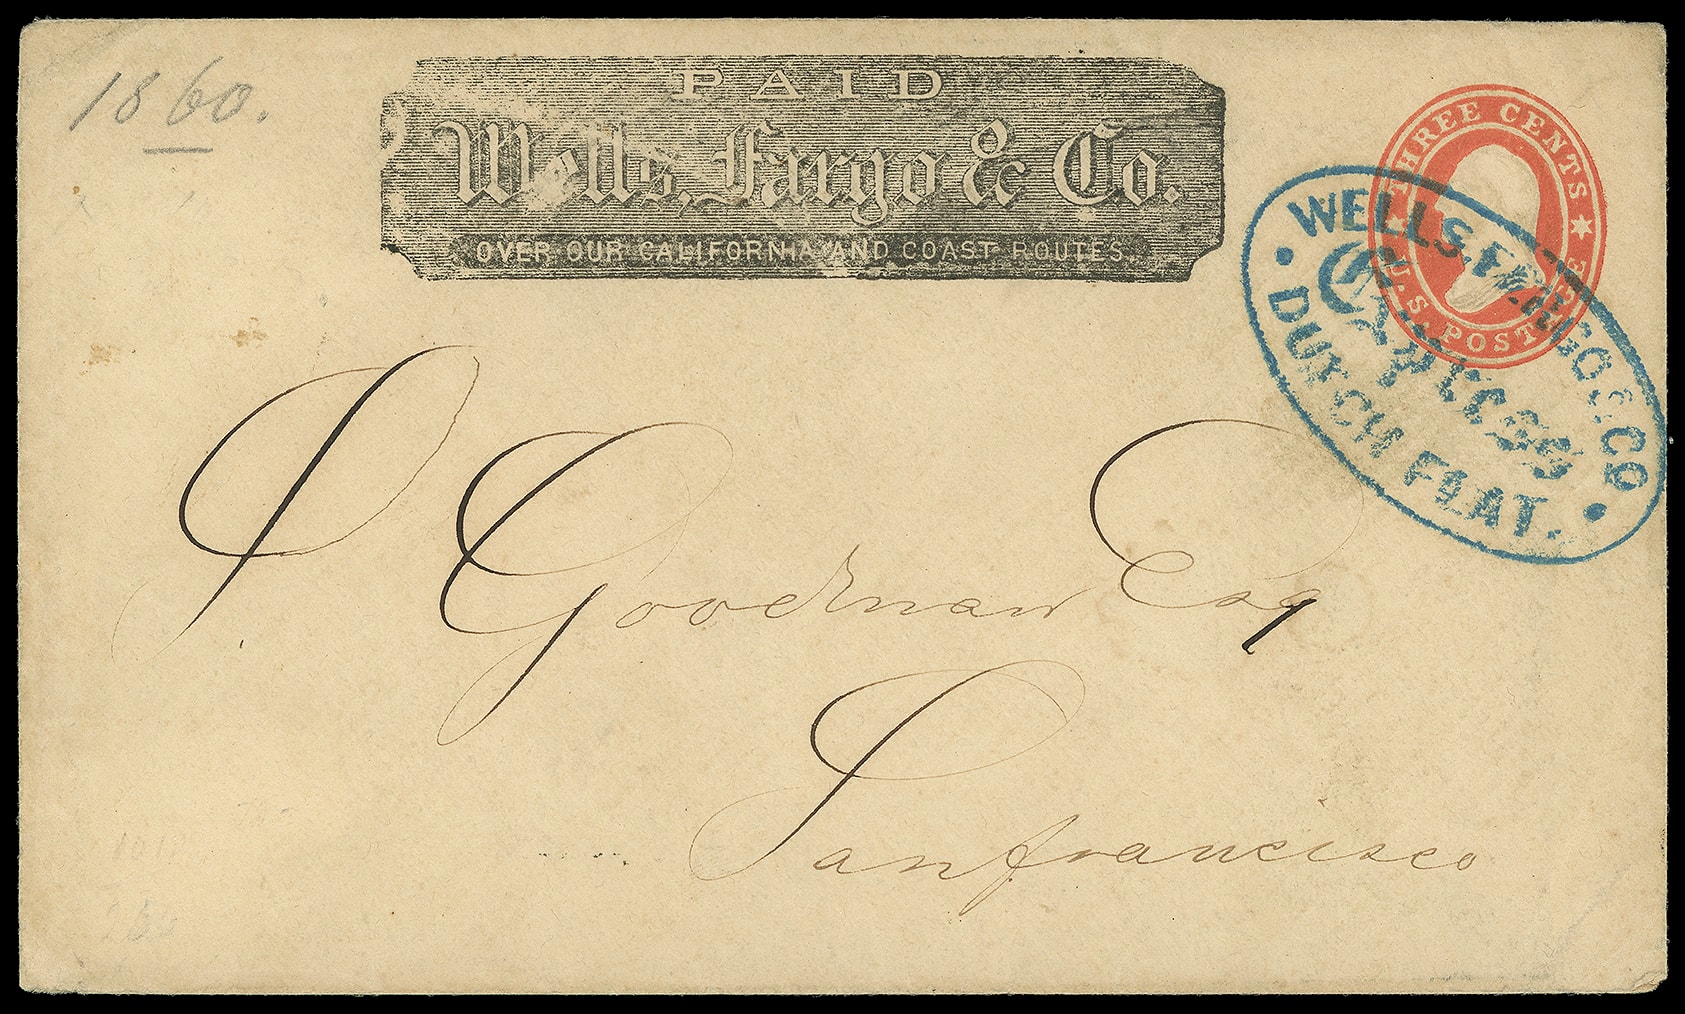 1860.
PAID
Wells, Fargo & Co.
OVER OUR CALIFORNIA AND COAST ROUTES.
THREE CENTS
U.S. POSTAGE
WELLS, FARGO & CO
Express
DUTCH FLAT.
Goodman Esq
Sanfrancisco